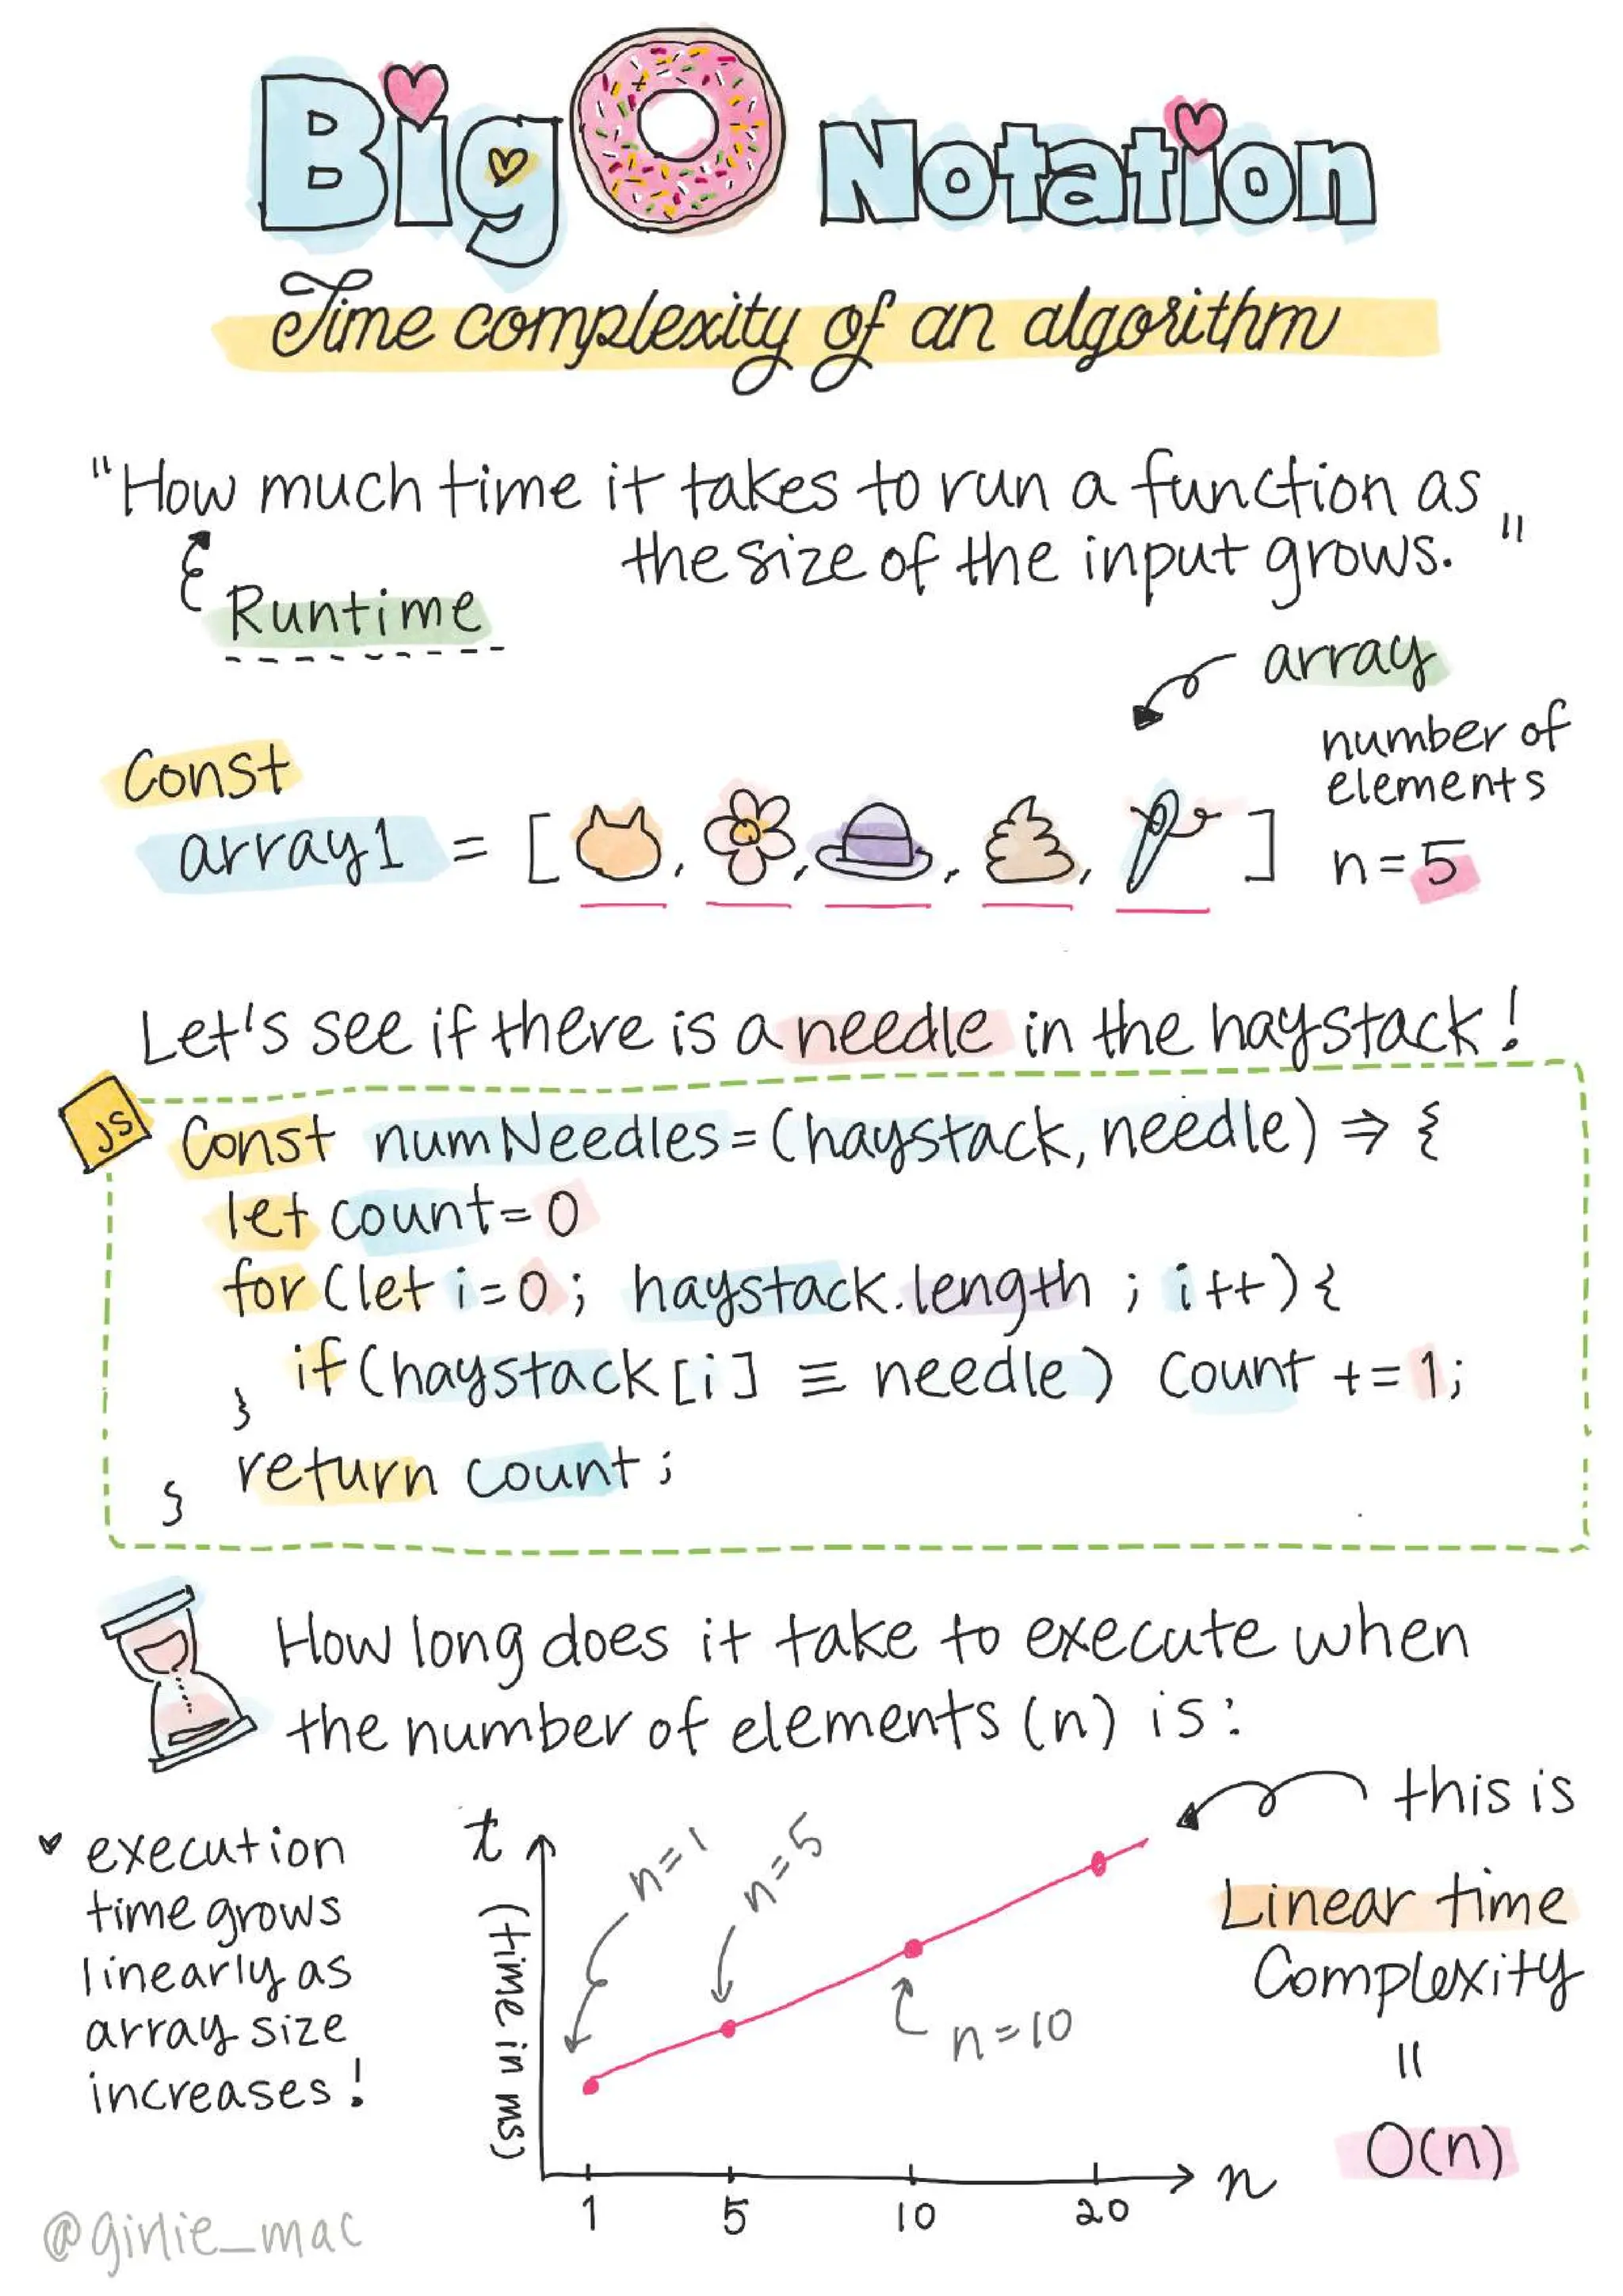 Big O Notation
Time complexity of an algorithm
"How much time it takes to run a function as
the size of the input grows. "
Runtime
array
Const
array1 = [ , , , , ]
number of
elements
n = 5
Let's see if there is a needle in the haystack!
JS
Const numNeedles = (haystack, needle) => {
let count = 0
for (let i = 0 ; haystack.length ; i++) {
if (haystack[i] ≡ needle) Count += 1;
}
return count ;
}
How long does it take to execute when
the number of elements (n) is :
execution
time grows
linearly as
array size
increases !
t
(time in ms)
n=1
n=5
n=10
1 5 10 20
n
this is
Linear time
Complexity
=
O(n)
@girlie_mac